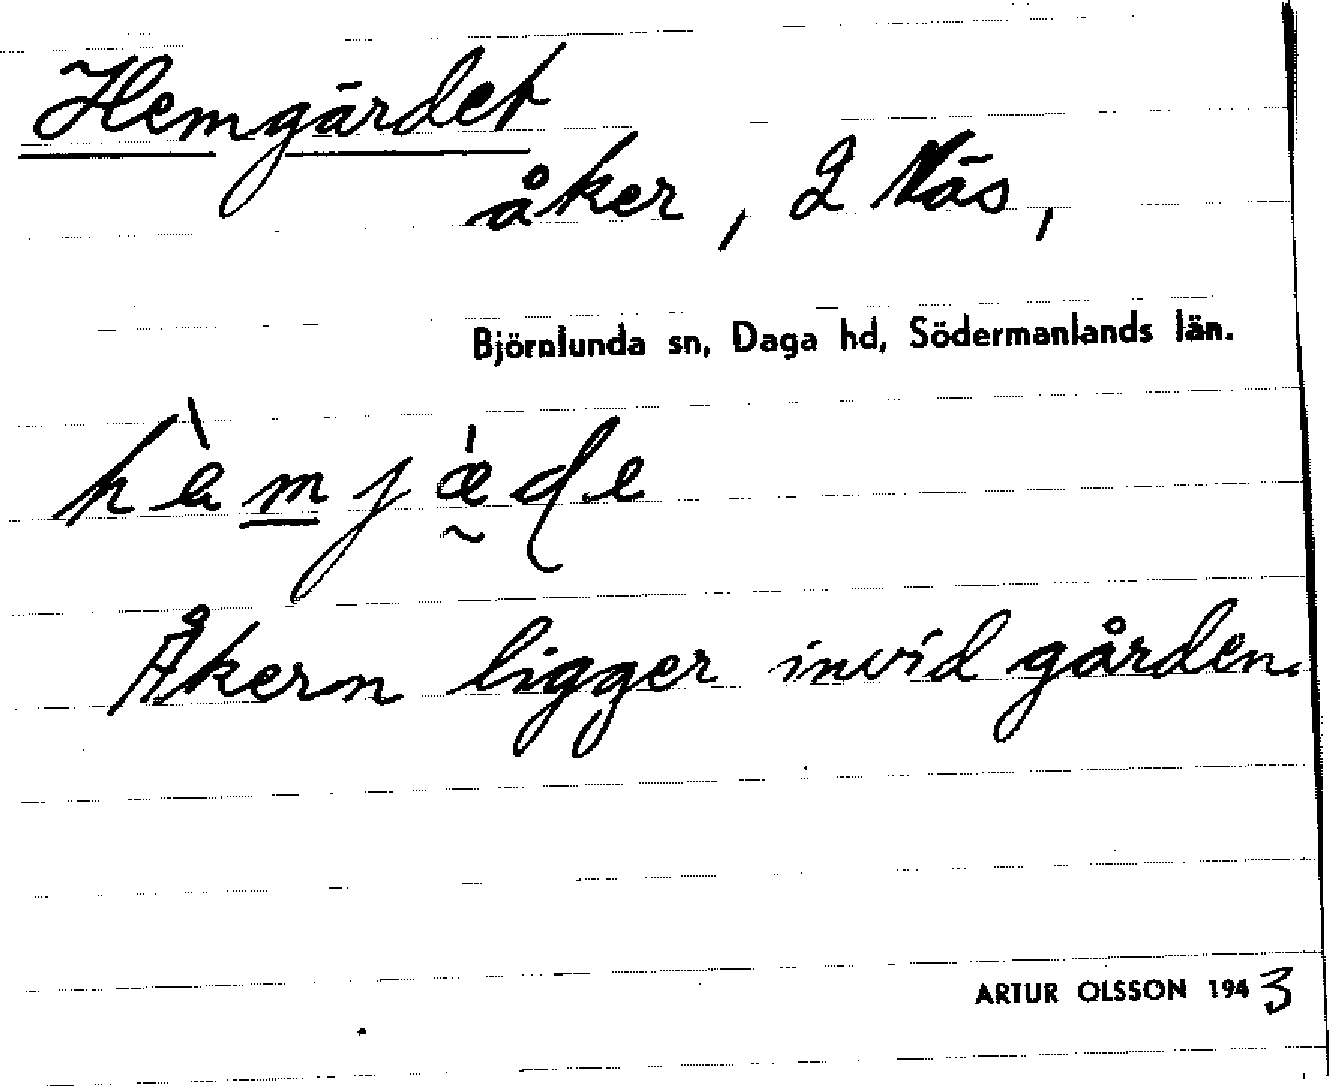 Hemgärdet
åker, 2 Näs,
Björnlunda sn, Daga hd, Södermanlands län.
hèmjǽ̰ɖe
Åkern ligger invid gården.
ARTUR OLSSON 1943